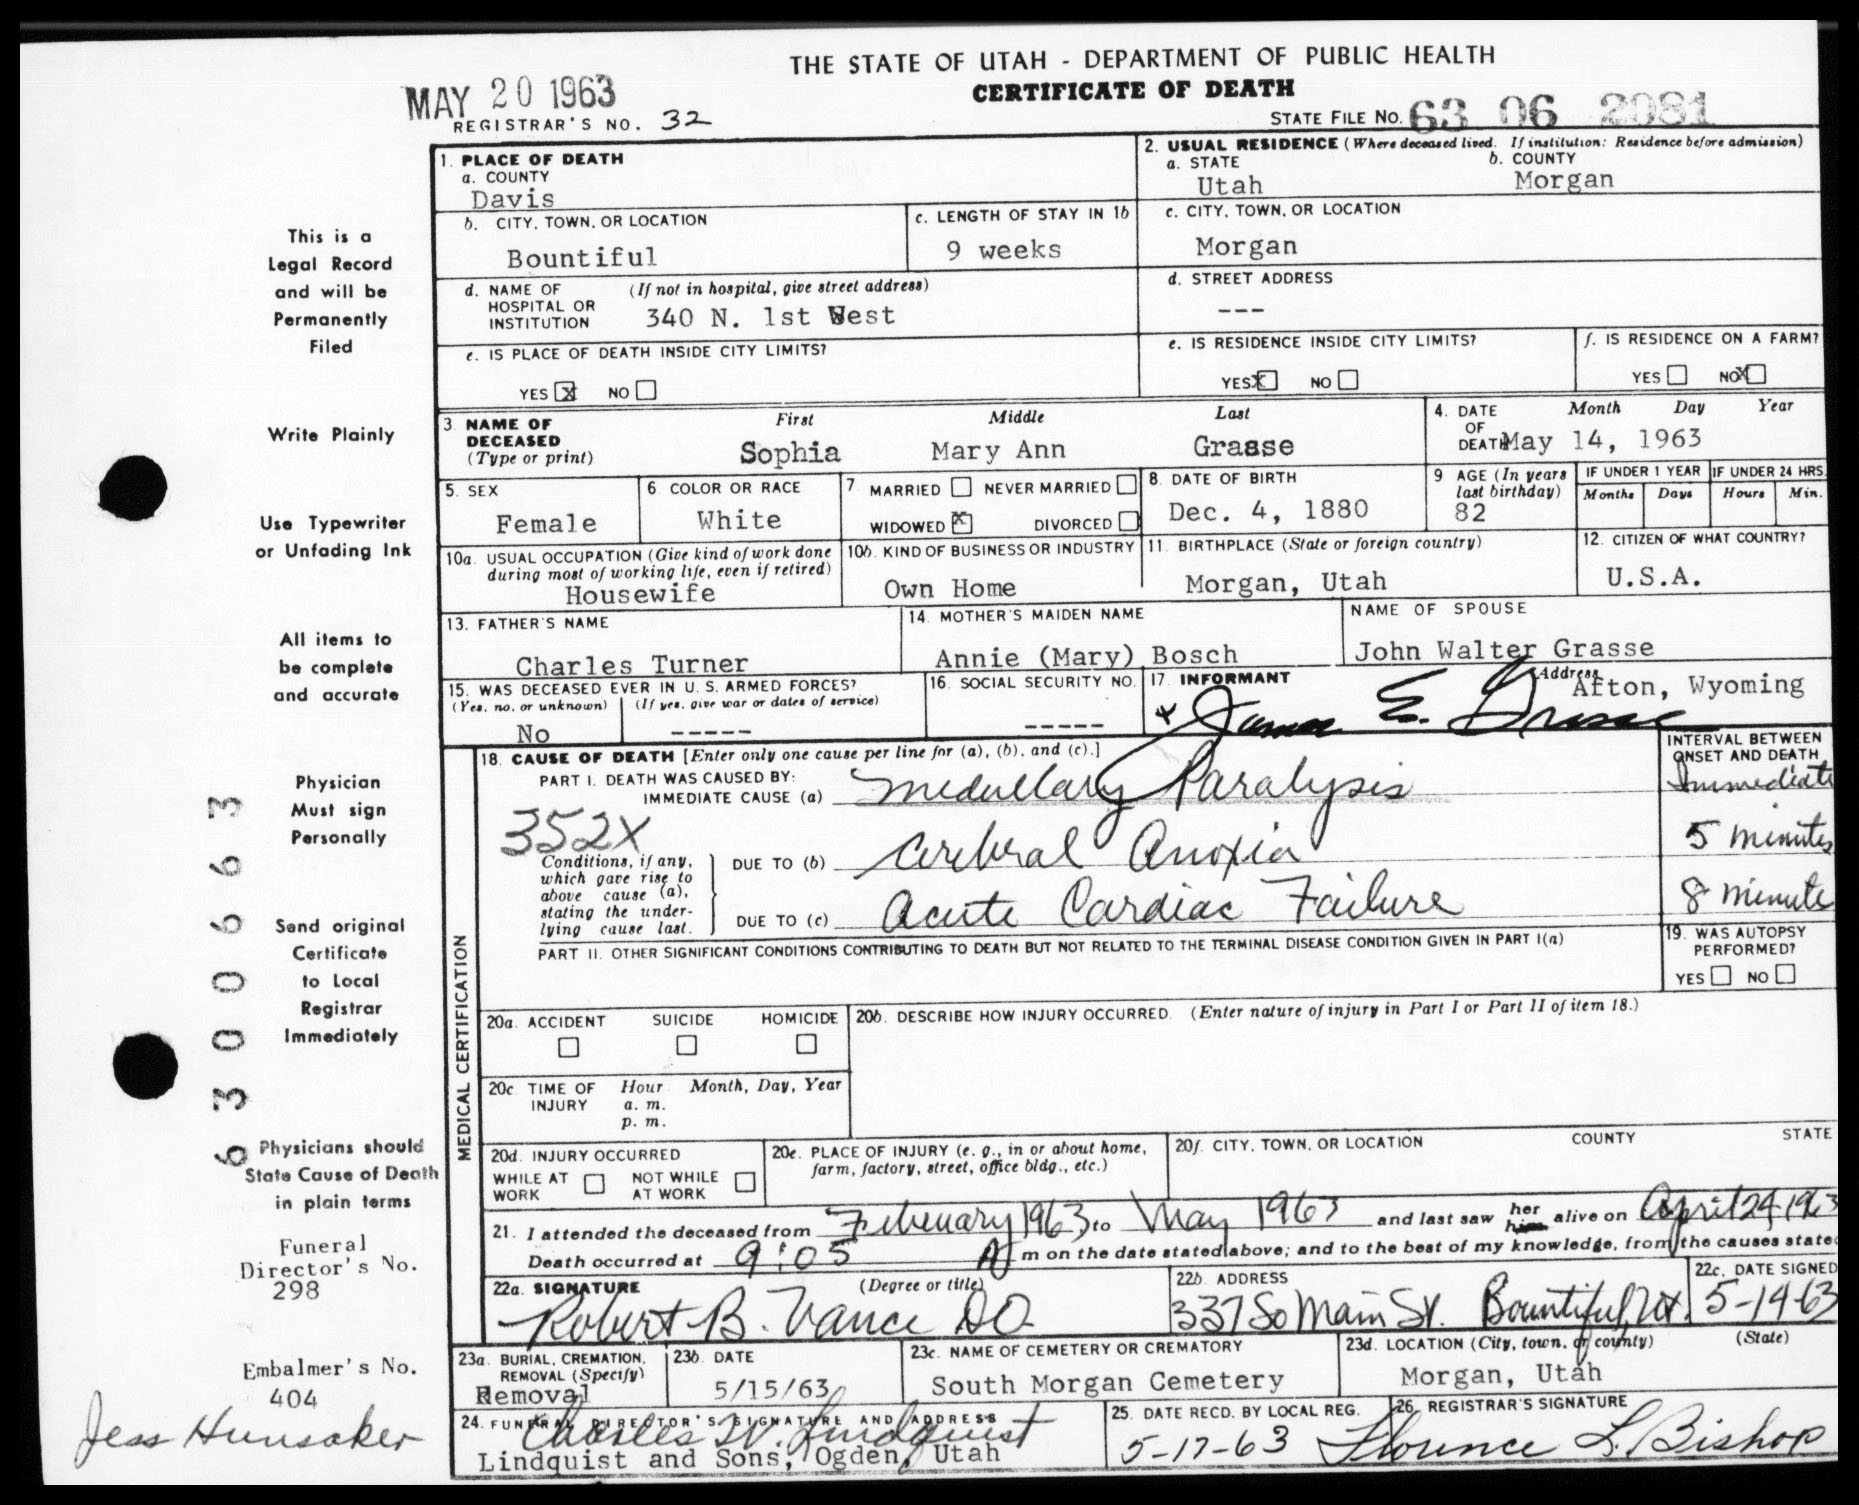 THE STATE OF UTAH - DEPARTMENT OF PUBLIC HEALTH
CERTIFICATE OF DEATH
MAY 20 1963
REGISTRAR'S NO. 32
STATE FILE NO. 63 06 2081
1. PLACE OF DEATH
a. COUNTY
Davis
2. USUAL RESIDENCE (Where deceased lived. If institution: Residence before admission)
a. STATE b. COUNTY
Utah Morgan
b. CITY, TOWN, OR LOCATION
Bountiful
c. LENGTH OF STAY IN 1b
9 weeks
c. CITY, TOWN, OR LOCATION
Morgan
d. NAME OF HOSPITAL OR INSTITUTION (If not in hospital, give street address)
340 N. 1st West
d. STREET ADDRESS
---
e. IS PLACE OF DEATH INSIDE CITY LIMITS?
YES X NO
e. IS RESIDENCE INSIDE CITY LIMITS?
YES X NO
f. IS RESIDENCE ON A FARM?
YES NO X
3. NAME OF DECEASED (Type or print)
First Middle Last
Sophia Mary Ann Grasse
4. DATE OF DEATH Month Day Year
May 14, 1963
5. SEX
Female
6 COLOR OR RACE
White
7 MARRIED NEVER MARRIED
WIDOWED X DIVORCED
8. DATE OF BIRTH
Dec. 4, 1880
9 AGE (In years last birthday)
82
IF UNDER 1 YEAR IF UNDER 24 HRS.
Months Days Hours Min.
10a. USUAL OCCUPATION (Give kind of work done during most of working life, even if retired)
Housewife
10b. KIND OF BUSINESS OR INDUSTRY
Own Home
11. BIRTHPLACE (State or foreign country)
Morgan, Utah
12. CITIZEN OF WHAT COUNTRY?
U.S.A.
13. FATHER'S NAME
Charles Turner
14. MOTHER'S MAIDEN NAME
Annie (Mary) Bosch
NAME OF SPOUSE
John Walter Grasse
15. WAS DECEASED EVER IN U. S. ARMED FORCES?
(Yes, no, or unknown) (If yes, give war or dates of service)
No -----
16. SOCIAL SECURITY NO.
-----
17. INFORMANT Address
x James E. Grasse Afton, Wyoming
MEDICAL CERTIFICATION
18. CAUSE OF DEATH [Enter only one cause per line for (a), (b), and (c).]
INTERVAL BETWEEN ONSET AND DEATH
PART I. DEATH WAS CAUSED BY:
IMMEDIATE CAUSE (a) Medullary Paralysis Immediate
352X
Conditions, if any, which gave rise to above cause (a), stating the underlying cause last.
DUE TO (b) Cerebral Anoxia 5 minutes
DUE TO (c) Acute Cardiac Failure 8 minute
PART II. OTHER SIGNIFICANT CONDITIONS CONTRIBUTING TO DEATH BUT NOT RELATED TO THE TERMINAL DISEASE CONDITION GIVEN IN PART I(a)
19. WAS AUTOPSY PERFORMED?
YES NO
20a. ACCIDENT SUICIDE HOMICIDE
20b. DESCRIBE HOW INJURY OCCURRED. (Enter nature of injury in Part I or Part II of item 18.)
20c. TIME OF INJURY Hour Month, Day, Year
a. m.
p. m.
20d. INJURY OCCURRED
WHILE AT WORK NOT WHILE AT WORK
20e. PLACE OF INJURY (e. g., in or about home, farm, factory, street, office bldg., etc.)
20f. CITY, TOWN, OR LOCATION COUNTY STATE
21. I attended the deceased from February 1963 to May 1963 and last saw her him alive on April 24 1963
Death occurred at 9:05 A m on the date stated above; and to the best of my knowledge, from the causes state
22a. SIGNATURE (Degree or title)
Robert B. Vance DO
22b. ADDRESS
337 So Main St. Bountiful, Ut.
22c. DATE SIGNED
5-14-63
23a. BURIAL, CREMATION, REMOVAL (Specify)
Removal
23b. DATE
5/15/63
23c. NAME OF CEMETERY OR CREMATORY
South Morgan Cemetery
23d. LOCATION (City, town, or county) (State)
Morgan, Utah
24. FUNERAL DIRECTOR'S SIGNATURE AND ADDRESS
Charles W. Lindquist
Lindquist and Sons, Ogden, Utah
25. DATE RECD. BY LOCAL REG.
5-17-63
26. REGISTRAR'S SIGNATURE
Florence L. Bishop
This is a
Legal Record
and will be
Permanently
Filed
Write Plainly
Use Typewriter
or Unfading Ink
All items to
be complete
and accurate
Physician
Must sign
Personally
Send original
Certificate
to Local
Registrar
Immediately
Physicians should
State Cause of Death
in plain terms
Funeral
Director's No.
298
Embalmer's No.
404
Jess Hunsaker
6300663